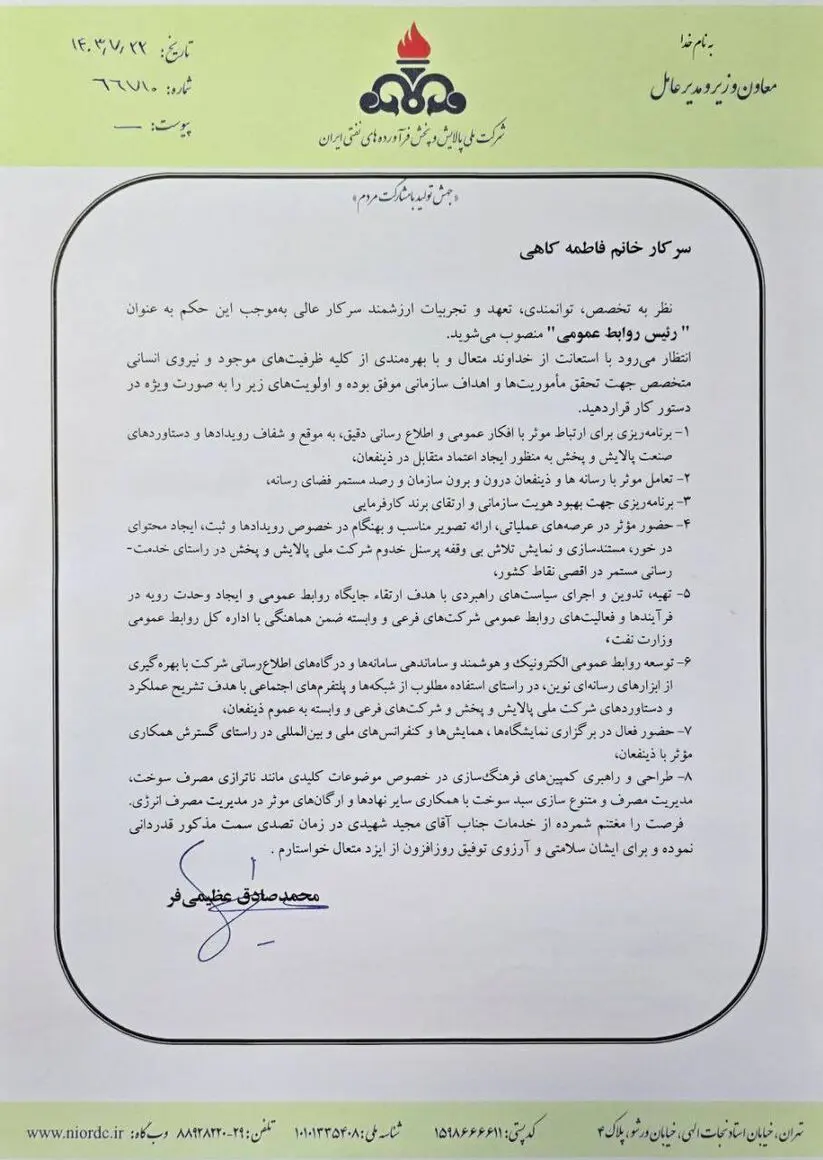 به نام خدا
معاون وزیر و مدیرعامل
شرکت ملی پالایش و پخش فرآورده های نفتی ایران
تاریخ: ۱۴۰۳/۷/۲۲
شماره: ۶۶۷۱۰
پیوست: —
«جهش تولید با مشارکت مردم»
سرکار خانم فاطمه کاهی
نظر به تخصص، توانمندی، تعهد و تجربیات ارزشمند سرکار عالی به‌موجب این حکم به عنوان
" رئیس روابط عمومی" منصوب می‌شوید.
انتظار می‌رود با استعانت از خداوند متعال و با بهره‌مندی از کلیه ظرفیت‌های موجود و نیروی انسانی
متخصص جهت تحقق مأموریت‌ها و اهداف سازمانی موفق بوده و اولویت‌های زیر را به صورت ویژه در
دستور کار قراردهید.
۱- برنامه‌ریزی برای ارتباط موثر با افکار عمومی و اطلاع رسانی دقیق، به موقع و شفاف رویدادها و دستاوردهای
صنعت پالایش و پخش به منظور ایجاد اعتماد متقابل در ذینفعان،
۲- تعامل موثر با رسانه ها و ذینفعان درون و برون سازمان و رصد مستمر فضای رسانه،
۳- برنامه‌ریزی جهت بهبود هویت سازمانی و ارتقای برند کارفرمایی
۴- حضور مؤثر در عرصه‌های عملیاتی، ارائه تصویر مناسب و بهنگام در خصوص رویدادها و ثبت، ایجاد محتوای
در خور، مستندسازی و نمایش تلاش بی وقفه پرسنل خدوم شرکت ملی پالایش و پخش در راستای خدمت-
رسانی مستمر در اقصی نقاط کشور،
۵- تهیه، تدوین و اجرای سیاست‌های راهبردی با هدف ارتقاء جایگاه روابط عمومی و ایجاد وحدت رویه در
فرآیندها و فعالیت‌های روابط عمومی شرکت‌های فرعی و وابسته ضمن هماهنگی با اداره کل روابط عمومی
وزارت نفت،
۶- توسعه روابط عمومی الکترونیک و هوشمند و ساماندهی سامانه‌ها و درگاه‌های اطلاع‌رسانی شرکت با بهره‌گیری
از ابزارهای رسانه‌ای نوین، در راستای استفاده مطلوب از شبکه‌ها و پلتفرم‌های اجتماعی با هدف تشریح عملکرد
و دستاوردهای شرکت ملی پالایش و پخش و شرکت‌های فرعی و وابسته به عموم ذینفعان،
۷- حضور فعال در برگزاری نمایشگاه‌ها ، همایش‌ها و کنفرانس‌های ملی و بین‌المللی در راستای گسترش همکاری
مؤثر با ذینفعان،
۸- طراحی و راهبری کمپین‌های فرهنگ‌سازی در خصوص موضوعات کلیدی مانند ناترازی مصرف سوخت،
مدیریت مصرف و متنوع سازی سبد سوخت با همکاری سایر نهادها و ارگان‌های موثر در مدیریت مصرف انرژی.
فرصت را مغتنم شمرده از خدمات جناب آقای مجید شهیدی در زمان تصدی سمت مذکور قدردانی
نموده و برای ایشان سلامتی و آرزوی توفیق روزافزون از ایزد متعال خواستارم .
محمدصادق عظیمی‌فر
تهران، خیابان استاد نجات الهی، خیابان ورشو، پلاک ۴ کد پستی: ۱۵۹۸۶۶۶۶۱۱ شناسه ملی: ۱۰۱۰۱۳۳۵۴۰۸ تلفن: ۲۹-۸۸۹۲۸۲۲۰ وب گاه: www.niordc.ir